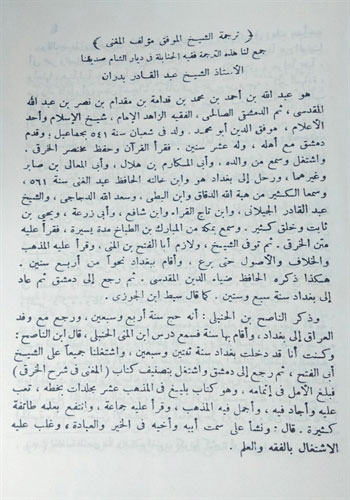 ﴿ ترجمة الشيخ الموفق مؤلف المغنى ﴾
جمع لنا هذه الترجمة فقيه الحنابلة فى ديار الشام صديقنا
الأستاذ الشيخ عبد القادر بدران
هو عبد الله بن أحمد بن محمد بن قدامة بن مقدام بن نصر بن عبد الله
المقدسى، ثم الدمشقى الصالحى، الفقيه الزاهد الإمام، شيخ الإسلام وأحد
الأعلام، موفق الدين أبو محمد. ولد فى شعبان سنة ٥٤١ بجماعيل، وقدم
دمشق مع أهله، وله عشر سنين. فقرأ القرآن وحفظ مختصر الخرقى.
واشتغل وسمع من والده، وأبى المكارم بن هلال، وأبى المعالى بن صابر
وغيرهما، ورحل إلى بغداد هو وابن خالته الحافظ عبد الغنى سنة ٥٦١،
وسمعا الكثير من هبة الله الدقاق وابن البطى، وسعد الله الدجاجى، والشيخ
عبد القادر الجيلانى، وابن تاج القراء، وابن شافع، وأبى زرعة، ويحيى بن
ثابت وخلق كثير. وسمع بمكة من المبارك بن الطباخ مدة يسيرة، فقرأ عليه
متن الخرقى. ثم توفى الشيخ، ولازم أبا الفتح بن المنى، وقرأ عليه المذهب
والخلاف والأصول حتى برع، وأقام ببغداد نحواً من أربع سنين.
هكذا ذكره الحافظ ضياء الدين المقدسى. ثم رجع إلى دمشق ثم عاد
إلى بغداد سنة سبع وستين. كما قال سبط ابن الجوزى.
وذكر الناصح بن الحنبلى: أنه حج سنة أربع وسبعين، ورجع مع وفد
العراق إلى بغداد، وأقام بها سنة فسمع درس ابن المنى الحنبلى، قال ابن الناصح:
وكنت أنا قد دخلت بغداد سنة ثنتين وسبعين، واشتغلنا جميعاً على الشيخ
أبى الفتح، ثم رجع إلى دمشق واشتغل بتصنيف كتاب (المغنى فى شرح الخرقى)
فبلغ الأمل فى إتمامه، وهو كتاب بليغ فى المذهب عشر مجلدات بخطه، تعب
عليه وأجاد فيه، وأجمل فيه المذهب، وقرأ عليه جماعة، وانتفع بعلمه طائفة
كثيرة. قال: ونشأ على سمت أبيه وأخيه فى الخير والعبادة، وغلب عليه
الاشتغال بالفقه والعلم.